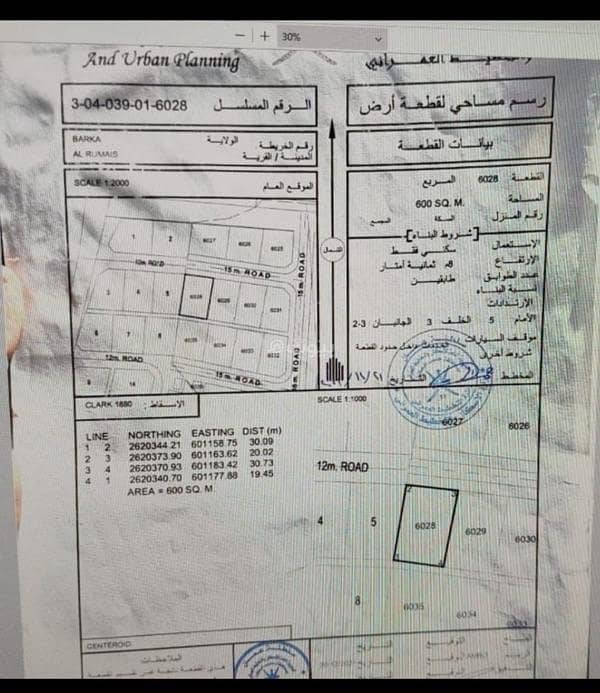 30%
And Urban Planning
3-04-039-01-6028 الرقم المسلسل
رسم مساحي لقطعة أرض
BARKA الولاية
AL RUMAIS
رقم الخريطة
المدينة / القرية
بيانات القطعة
SCALE 1:2000 الموقع العام
القطعة 6028 المربع
المساحة 600 SQ. M.
رقم المنزل السكة المجمع
شروط البناء
الإستعمال سكني فقط
الإرتفاع 8م ثمانية أمتار
عدد الطوابق طابقين
نسبة البناء
الإرتدادات
الأمام 5 الخلف 3 الجانبان 3-2
موقف السيارات داخل حدود القطعة
شروط أخرى
المخطط
التاريخ
الشمال
1 2 6027 6026 6025
12m. ROAD
15 m. ROAD
15 m. ROAD
3 4 5 6028 6029 6030 6031
6 7 8 6035 6034 6033 6032
12m. ROAD
15 m. ROAD
9 14
CLARK 1880 الإسقاط :
SCALE 1:1000
LINE NORTHING EASTING DIST (m)
1 2 2620344.21 601158.75 30.09
2 3 2620373.90 601163.62 20.02
3 4 2620370.93 601183.42 30.73
4 1 2620340.70 601177.88 19.45
AREA = 600 SQ. M.
6027
6026
12m. ROAD
4 5 6028 6029 6030
8 6035 6034 6033
CENTEROID
الملاحظات
التاريخ
التوقيع